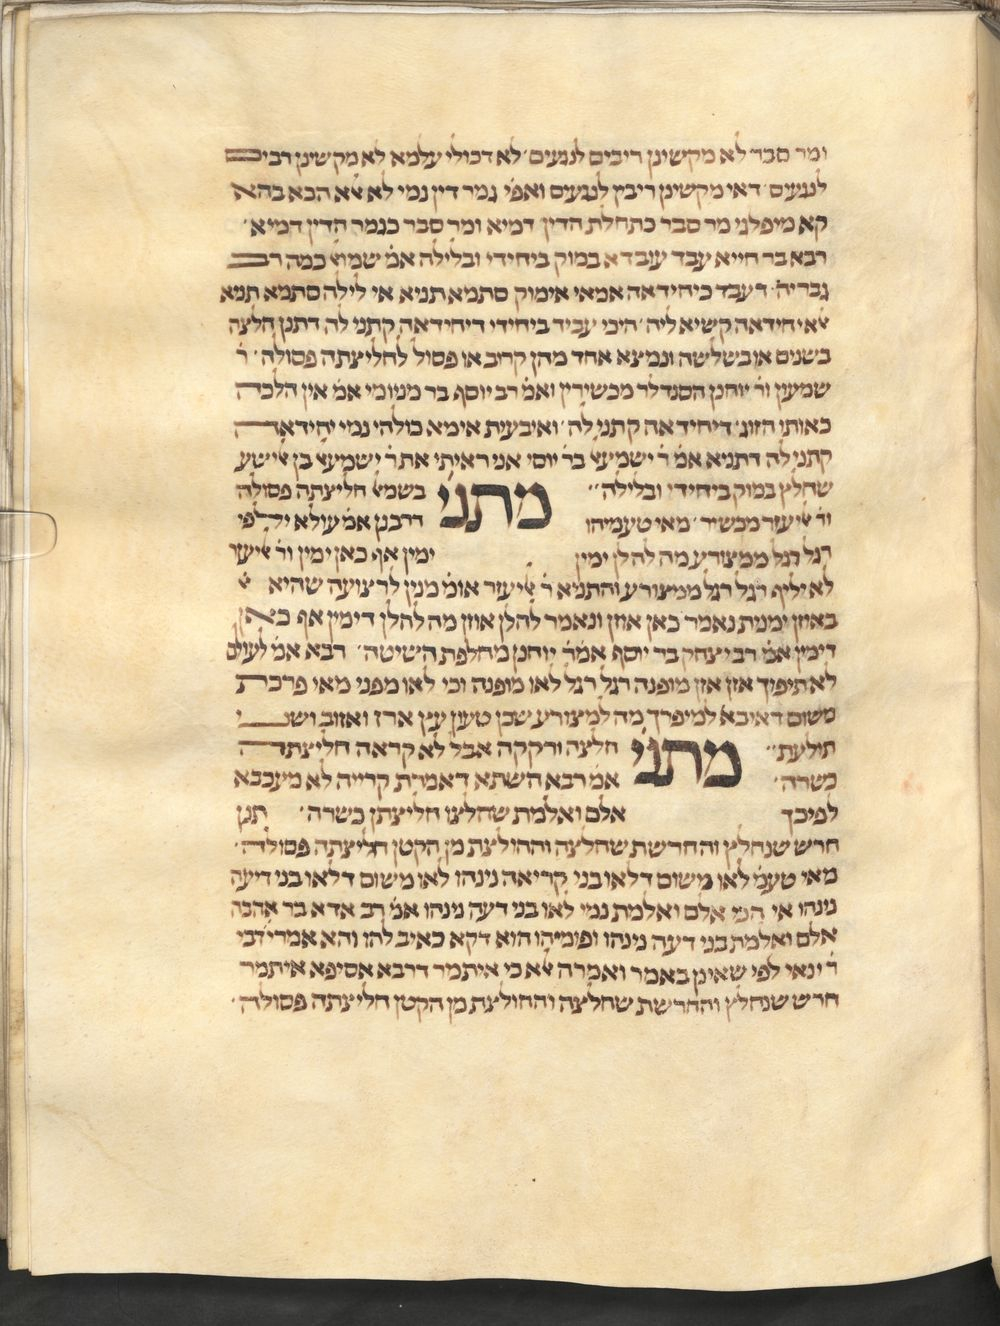 ומר סבר לא מקשינן ריבים לנגעים׳ לא דכולי עלמא לא מקשינן רבים
לנגעים׳ דאי מקשינן ריבין לנגעים ואפי׳ גמר דין נמי לא אלא הכא בהא
קא מיפלגי מר סבר כתחלת הדין דמיא ומר סבר כגמר הדין דמיא׳
רבא בר חייא עבד עובדא במוק ביחידי ובלילה אמ׳ שמואל כמה רב
גבריה׳ דעבד כיחידאה אמאי אימוק סתמא תניא אי לילה סתמא תניא
אלא יחידאה קשיא ליה׳ היכי עביד ביחידי דיחידאה קתני לה דתנן חלצה
בשנים או בשלשה ונמצא אחד מהן קרוב או פסול לחליצתה פסולה׳ ר׳
שמעון ור׳ יוחנן הסנדלר מכשירין ואמ׳ רב יוסף בר מניומי אמ׳ אין הלכה
כאותו הזוג׳ דיחידאה קתני לה׳ ואיבעית אימא כולהי נמי יחידאה
קתני לה דתניא אמ׳ ר׳ ישמעאל בר׳ יוסי אני ראיתי את ר׳ ישמעאל בן אלישע
שחלץ במוק ביחידי ובלילה׳׳ מתני׳ בשמאל חליצתה פסולה
ור׳ אליעזר מכשיר׳ מאי טעמיהו דרבנן אמ׳ עולא ילפי
רגל רגל ממצורע מה להלן ימין ימין אף כאן ימין ור׳ אליעזר
לא יליף רגל רגל ממצורע והתניא ר׳ אליעזר אומ׳ מנין לרצועה שהיא
באוזן ימנית נאמר כאן אוזן ונאמר להלן אוזן מה להלן דימין אף כאן
דימין אמ׳ רב יצחק בר יוסף אמ׳ ר׳ יוחנן מחלפת השיטה׳ רבא אמ׳ לעולם
לא תיפוך אזן אזן מופנה רגל רגל לאו מופנה וכי לאו מפני מאי פרכת
משום דאיכא למיפרך מה למצורע שכן טעון עץ ארז ואזוב ושני
תולעת׳׳ מתני׳ חלצה ורקקה אבל לא קראה חליצתה
כשרה׳ אמ׳ רבא השתא דאמרת קרייה לא מעכבא
לפיכך אלם ואלמת שחלצו חליצתן כשרה׳ תנן
חרש שנחלץ והחרשת שחלצה והחולצת מן הקטן חליצתה פסולה׳
מאי טעמ׳ לאו משום דלאו בני קריאה נינהו לאו משום דלאו בני דיעה
נינהו אי הכי אלם ואלמת נמי לאו בני דעה נינהו אמ׳ רב אדא בר אהבה
אלם ואלמת בני דעה נינהו ופומיהו הוא דקא כאיב להו והא אמרי דבי
ר׳ ינאי לפי שאינן באמר ואמרה אלא כי איתמר דרבא אסיפא איתמר
חרש שנחלץ והחרשת שחלצה והחולצת מן הקטן חליצתה פסולה׳